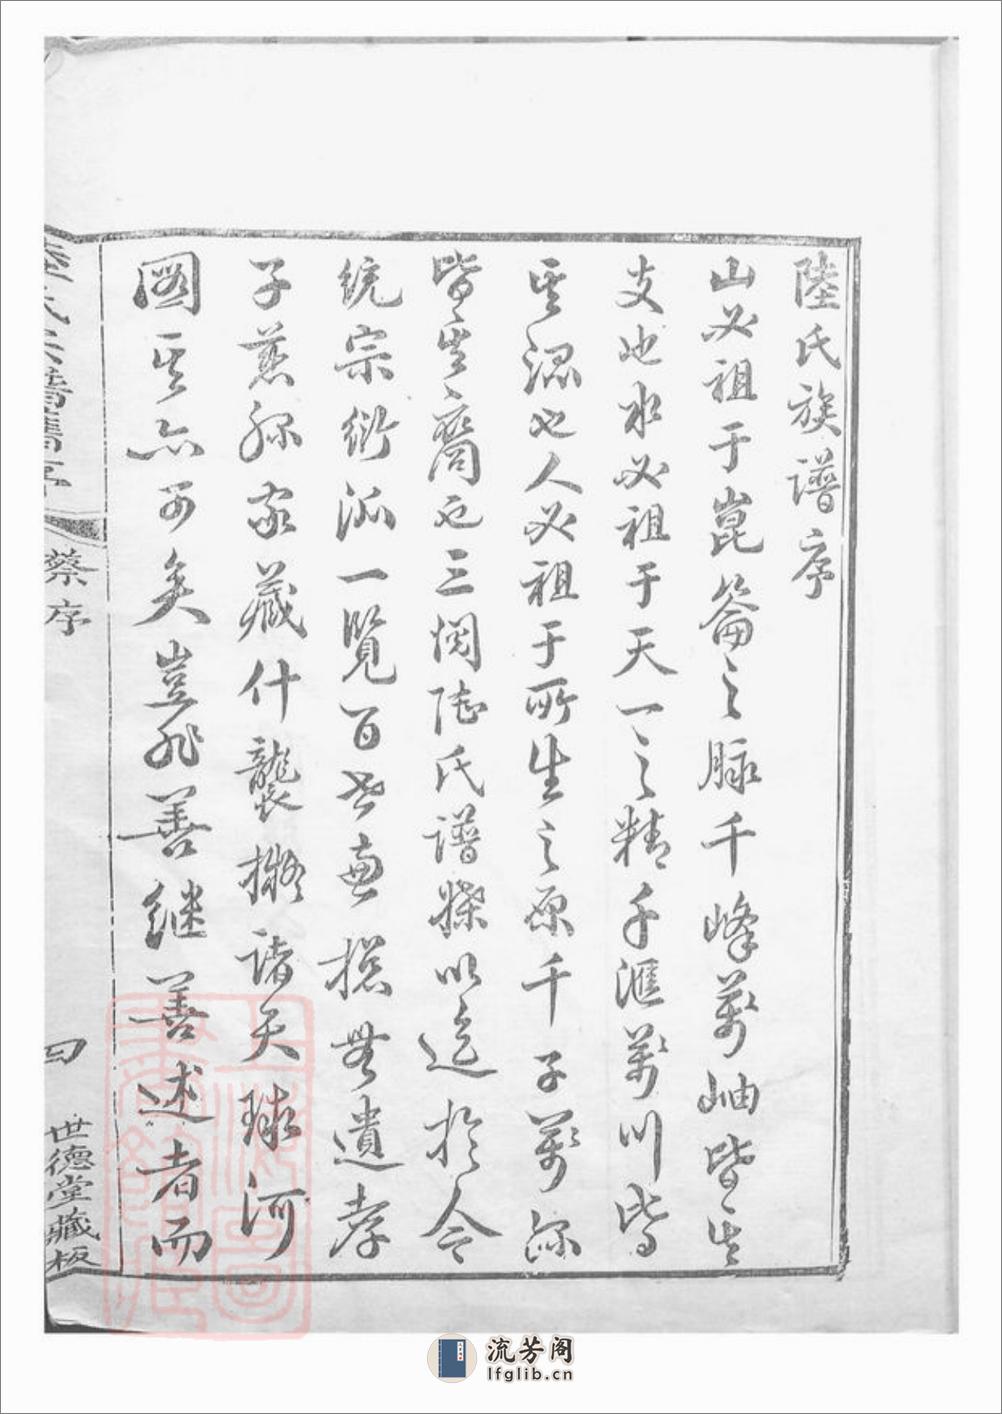 陸氏族譜序
山必祖于崑崙之脉千峰萬岫皆其
支也水必祖于天一之精千滙萬川皆
其派也人必祖于所生之原千子萬孫
皆其裔也三閱陸氏譜牒以迄於今
統宗衍派一覽百世無遺孝
子慈孫家藏什襲擬諸天球河
圖其亦可矣豈非善繼善述者而
蔡序
四
世德堂藏板
流芳阁
lfglib.cn